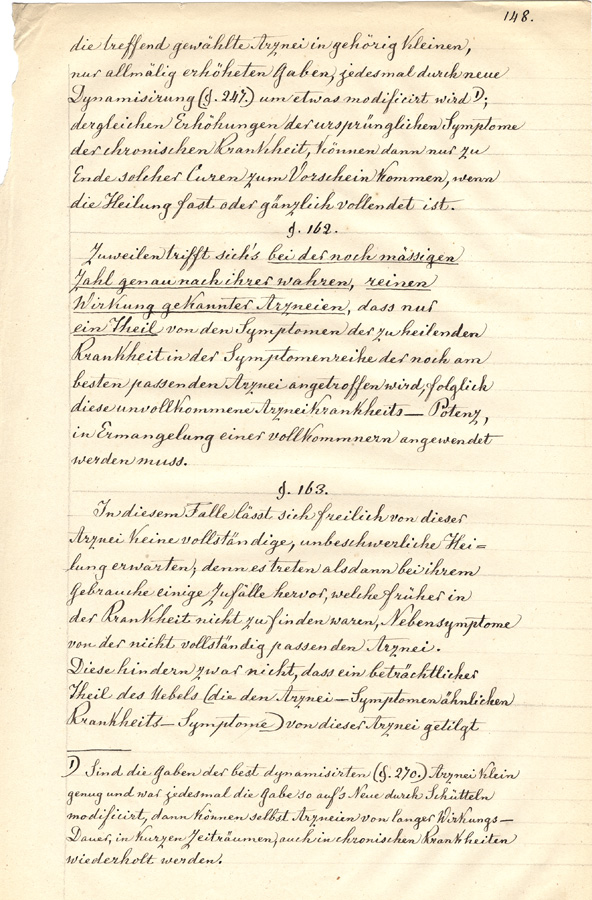 148.
die treffend gewählte Arznei in gehörig kleinen,
nur allmälig erhöheten Gaben, jedesmal durch neue
Dynamisirung (§. 247.) um etwas modificirt wird 1);
dergleichen Erhöhungen der ursprünglichen Symptome
der chronischen Krankheit, können dann nur zu
Ende solcher Curen zum Vorschein kommen, wenn
die Heilung fast oder gänzlich vollendet ist.
§. 162.
Zuweilen trifft sich's bei der noch mässigen
Zahl genau nach ihrer wahren, reinen
Wirkung gekannter Arzneien, dass nur
ein Theil von den Symptomen der zu heilenden
Krankheit in der Symptomenreihe der noch am
besten passenden Arznei angetroffen wird, folglich
diese unvollkommene Arzneikrankheits—Potenz,
in Ermangelung einer vollkommnern angewendet
werden muss.
§. 163.
In diesem Falle lässt sich freilich von dieser
Arznei keine vollständige, unbeschwerliche Hei=
lung erwarten; denn es treten alsdann bei ihrem
Gebrauche einige Zufälle hervor, welche früher in
der Krankheit nicht zu finden waren, Nebensymptome
von der nicht vollständig passenden Arznei.
Diese hindern zwar nicht, dass ein beträchtlicher
Theil des Uebels (die den Arznei—Symptomen ähnlichen
Krankheits—Symptome) von dieser Arznei getilgt
1) Sind die Gaben der best dynamisirten (§. 270.) Arznei klein
genug und war jedesmal die Gabe so auf's Neue durch Schütteln
modificirt, dann können selbst Arzneien von langer Wirkungs—
Dauer, in kurzen Zeiträumen, auch in chronischen Krankheiten
wiederholt werden.